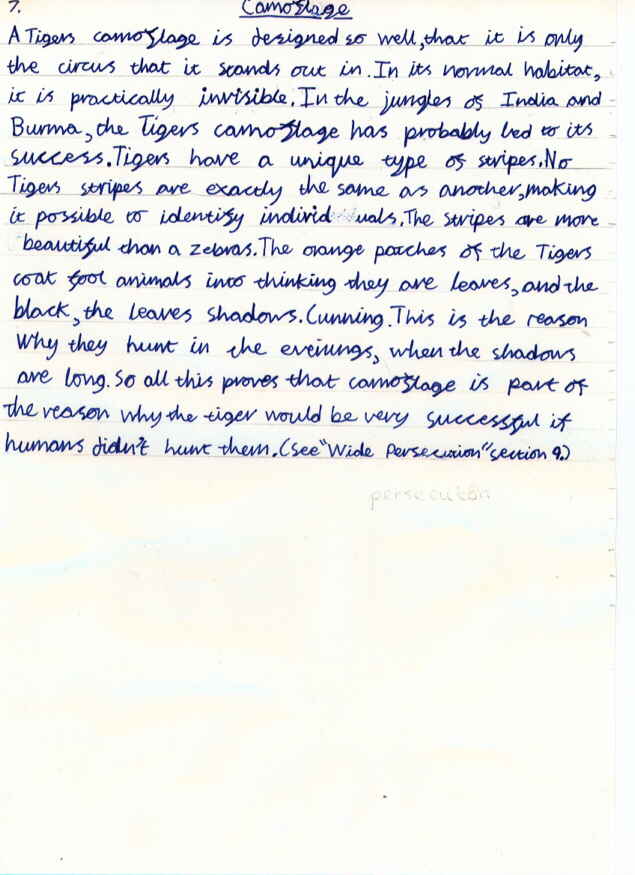 7.
Camoflage
A Tigers camoflage is designed so well, that it is only
the circus that it stands out in. In its normal habitat,
it is practically invisible. In the jungles of India and
Burma, the Tigers camoflage has probably led to its
success. Tigers have a unique type of stripes. No
Tigers stripes are exactly the same as another, making
it possible to identify individuals. The stripes are more
beautiful than a zebras. The orange patches of the Tigers
coat fool animals into thinking they are leaves, and the
black, the leaves shadows. Cunning. This is the reason
Why they hunt in the evenings, when the shadows
are long. So all this proves that camoflage is part of
the reason why the tiger would be very successful if
humans didn't hunt them. (See "Wide Persecution" section 9.)
persecution